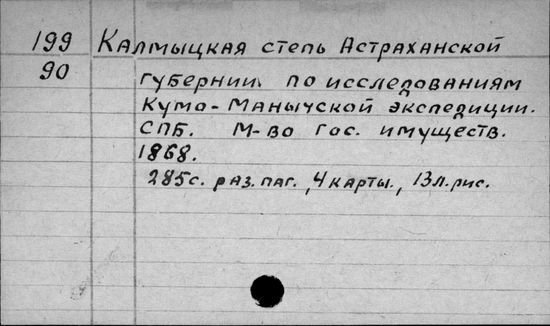 199 Калмыцкая степь Астраханской
90 губернии по исследованиям
Кумо-Манычской экспедиции.
СПБ. М-во Гос. имуществ.
1868.
285с. раз. паг., 4 карты., 13 л. рис.